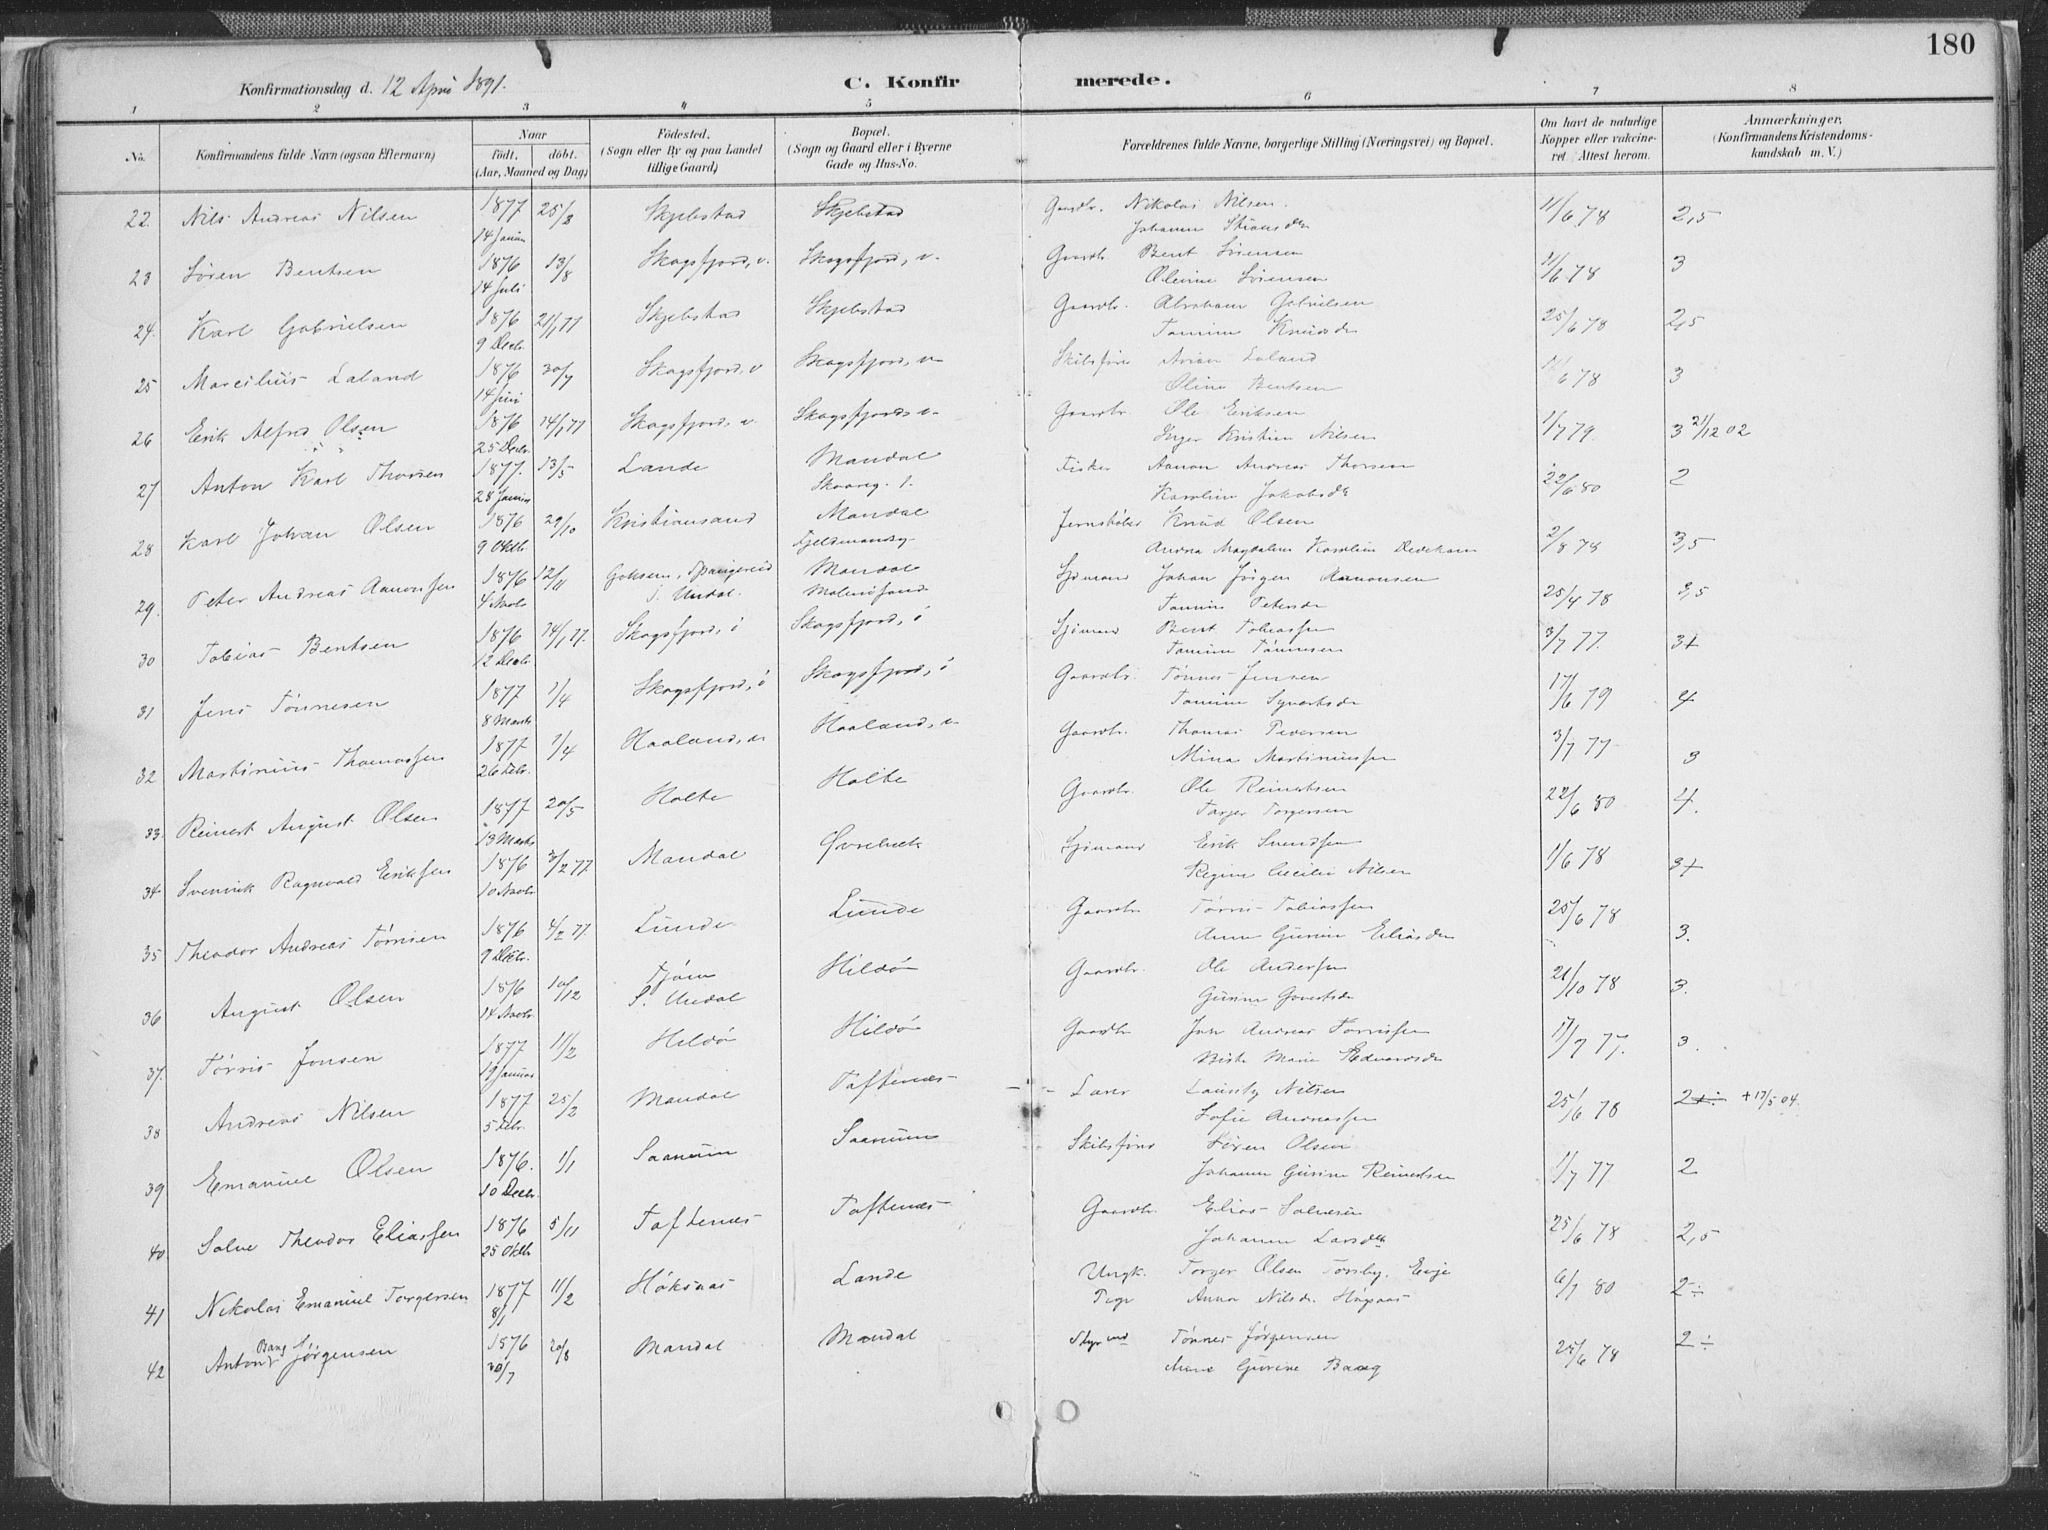 180
Konfirmationsdag d. 12 April 1891.
C. Konfirmerede.
1 2 3 4 5 6 7 8
No.
Konfirmandens fulde Navn (ogsaa Efternavn)
Naar
födt, döbt.
(Aar, Maaned og Dag)
Födested.
(Sogn eller By og paa Landet
tillige Gaard)
Bopæl.
(Sogn og Gaard eller i Byerne
Gade og Hus-No.
Forældrenes fulde Navne, borgerlige Stilling (Næringsvei) og Bopæl.
Om havt de naturlige
Kopper eller vakcine-
ret Attest herom.
Anmærkninger.
(Konfirmandens Kristendoms-
kundskab m. V.)
22. Nils Andreas Nilsen 1877 25/2 Skjebstad Skjebstad Gaardbr. Nikolai Nilsen 11/6 78 2,5
14 Januar Johanne
23 Sören Bentsen 1876 13/8 Skogsfjord, v. Skogsfjord, v. Gaardbr. Bent Sörensen 11/6 78 3
14 Juli Olevine Sörensen
24. Karl Gabrielsen 1876 21/1 77 Skjebstad Skjebstad Gaardbr. Abraham Gabrielsen 25/6 78 2,5
9 Decbr. Tomine Knudsdr
25 Marcelius Laland 1876 30/7 Skogsfjord, v Skogsfjord, v Skibsförer Laland 11/6 78 3
14 Juni Oline Bentsen
26 Erik Alfred Olsen 1876 14/1 77 Skogsfjord, v. Skogsfjord, v. Gaardbr. Ole Eriksen 1/7 79. 3 21/12 02
25 Decbr. Inger Kristine Nilsen
27 Anton Karl Thorsen 1877. 13/5 Lande Mandal Fisker Aanon Andreas Thorsen 22/6 80 2
28 Januar Skaareg. 1. Karoline Jakobsdr
28 Karl Johan Olsen 1876 29/10 Kristiansand Mandal Knud Olsen 2/8 78 3,5
9 Oktbr. Andrea Magdalene Karoline Dedekam
29. Peter Andreas Aanonsen 1876 12/11 Spangereid Mandal Sjömand Johan Jörgen Aanonsen 25/4 78 3,5
4 Novbr. S. Undal. Malmö Tomine Petersdr
30 Tobias Bentsen 1876 14/1 77. Skogsfjord, ö Skogsfjord, ö Sjömand Bent Tobiassen 3/7 77. 3+
12 Decbr. Tomine Tönnesen
31 Jens Tönnesen 1877 1/4 Skogsfjord, ö Skogsfjord, ö Gaardbr. Tönnes Jensen 17/6 79 4
8 Marts Tomine Syvertsdr
32 Martinius Thomassen 1877 1/4 Haaland, n Haaland, n Gaardbr. Thomas Pedersen 3/7 77 3
26 Febr. Mina Martiniussen
33. Reinert August Olsen 1877 20/5 Holte Holte Gaardbr. Ole Reinertsen 22/6 80 4.
13 Marts Torger Torgersen
34 Svennik Ragnvald Eriksen 1876 3/2 77. Mandal Øvrebæk Sjömand Erik Svendsen 1/6 78 3+
10 Novbr. Regine Cecilie Nilsen
35 Theodor Andreas Törrisen 1876 4/2 77. Lunde Lunde Gaardbr. Törris Tobiassen 25/6 78 3.
9 Decbr. Anne Gurine Eliasdr
36 August Olsen 1876 10/12 Fjöm Hildö Gaardbr. Ole Andersen 21/10 78 3.
14 Novbr. S. Undal Gurine Govertsdr
37. Törris Jonsen 1877 11/2 Hildö Hildö Gaardbr. Jon Andreas Torrissen 17/7 77. 3.
19 Januar Marie Edvardsdr
38 Andreas Nilsen 1877 25/2 Mandal Toftenæs Nilsen 25/6 78 2 + 17/5 04.
5 Febr. Sofie Andreassen
39 Emanuel Olsen 1876. 1/1 Saanum Saanum Skibsförer Sören Olsen 1/7 77 2
10 Decbr. Johanne Gurine Reinertsen
40 Salve Theodor Eliassen 1876 5/11 Toftenæs Toftenæs Gaardbr. Elias Salvesen 25/6 78 2,5
25 Oktbr. Johanne Larsdtr
41 Nikolai Emanuel Torgersen 1877 11/2 Höksnas Lande Ungk. Torger Olsen Evje 6/7 80 2÷
8/1 Pige Anna Nilsdr.
42 Anton Bang Jörgensen 1876 20/8 Mandal Mandal Styrmd Tönnes Jörgensen 25/6 78 2÷
20/7 Anne Gurine Baang